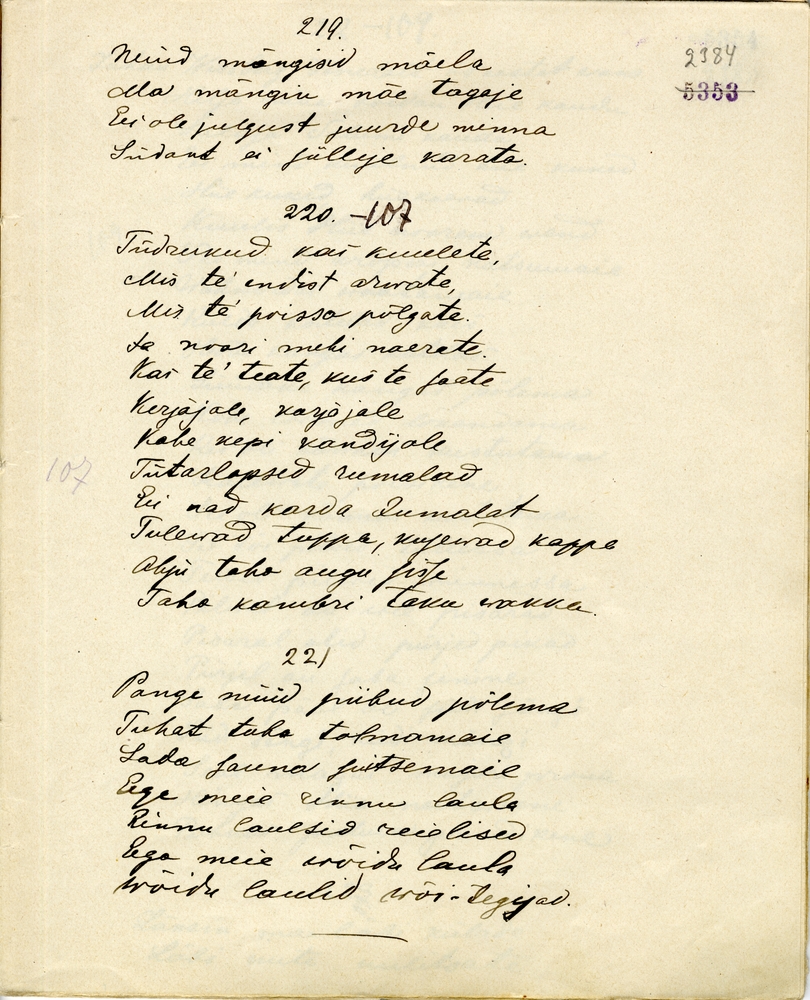 219.
2384
5353
Nüüd mängisid mäela
Ma mängin mäe tagaje
Ei ole julgust juurde minna
Südant ei süllije karata.
220. -107
Tüdrukud kas kuulete,
Mis te' endist arwate,
Mis te' poissa põlgate.
Ja noori mehi naerate.
Kas te' teate, kus te saate
Karjajale, karjajale
Kahe kepi kandijale
107
Tütarlapsed rumalad
Ei nad karda Jumalat
Tulewad tuppa, kusewad kappa
Ahju taha augu sisse
Taha kambri taku wakka.
221
Pange nüüd piibud põlema
Tuhat tuba tolmamaie
Sada sauna suitsemaie
Ega meie rinnu laula
Rinnu laulsid reielised
Ega meie wõidu laula
Wõidu laulid wõi-tegijad.